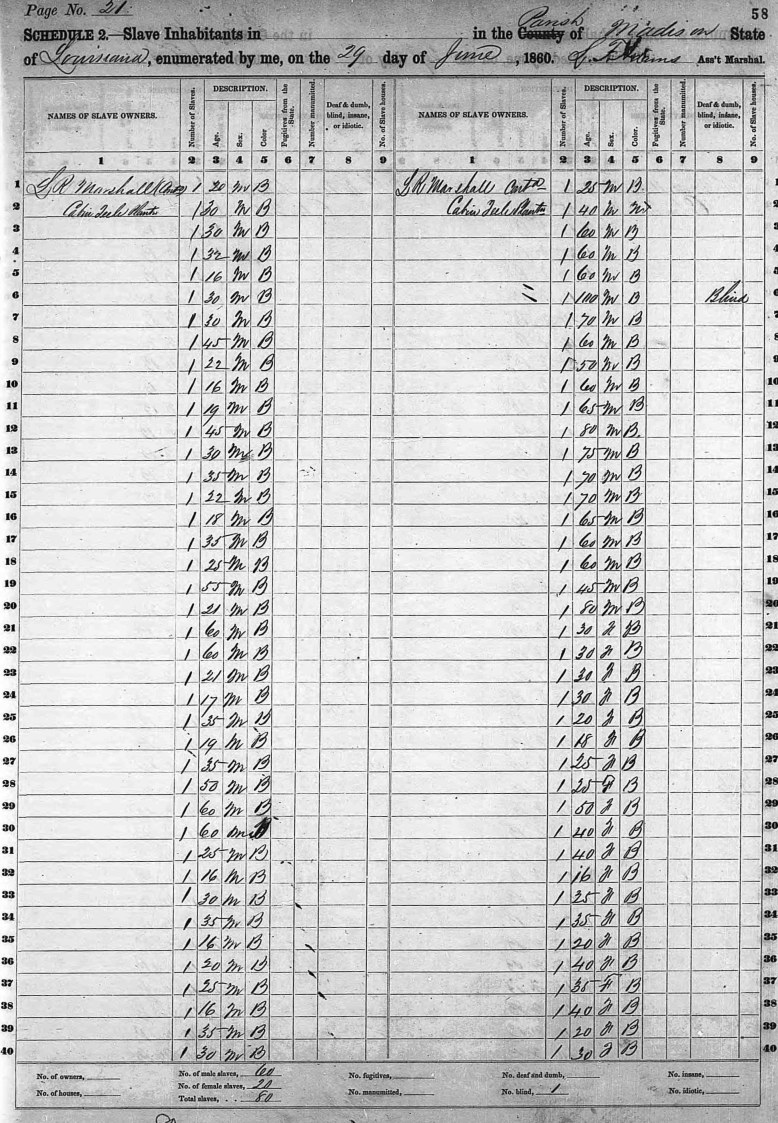 Page No. 21
58
SCHEDULE 2.—Slave Inhabitants in in the County Parish of Madison State
of Louisiana, enumerated by me, on the 29 day of June, 1860. Ass't Marshal.
NAMES OF SLAVE OWNERS. Number of Slaves. DESCRIPTION. Age. Sex. Color. Fugitives from the State. Number manumitted. Deaf & dumb, blind, insane, or idiotic. No. of Slave houses. NAMES OF SLAVE OWNERS. Number of Slaves. DESCRIPTION. Age. Sex. Color. Fugitives from the State. Number manumitted. Deaf & dumb, blind, insane, or idiotic. No. of Slave houses.
1 2 3 4 5 6 7 8 9 1 2 3 4 5 6 7 8 9
1 L R Marshall 1 20 M B L R Marshall Contd 1 25 M B 1
2 Cabin Teele 1 30 M B Cabin Teele 1 40 M 2
3 1 30 M B 1 60 M B 3
4 1 32 M B 1 60 M B 4
5 1 16 M B 1 60 M B 5
6 1 30 M B 1 100 M B Blind 6
7 1 30 M B 1 70 M B 7
8 1 45 M B 1 60 M B 8
9 1 22 M B 1 50 M B 9
10 1 16 M B 1 60 M B 10
11 1 19 M B 1 65 M B 11
12 1 45 M B 1 80 M B 12
13 1 30 M B 1 75 M B 13
14 1 35 M B 1 70 M B 14
15 1 22 M B 1 70 M B 15
16 1 18 M B 1 65 M B 16
17 1 35 M B 1 60 M B 17
18 1 25 M B 1 60 M B 18
19 1 55 M B 1 45 M B 19
20 1 21 M B 1 80 M B 20
21 1 60 M B 1 30 F B 21
22 1 60 M B 1 30 F B 22
23 1 21 M B 1 30 F B 23
24 1 17 M B 1 30 F B 24
25 1 35 M B 1 20 F B 25
26 1 19 M B 1 18 F B 26
27 1 35 M B 1 25 F B 27
28 1 50 M B 1 25 F B 28
29 1 60 M B 1 50 F B 29
30 1 60 M B 1 40 F B 30
31 1 25 M B 1 40 F B 31
32 1 16 M B 1 16 F B 32
33 1 30 M B 1 25 F B 33
34 1 35 M B 1 35 F B 34
35 1 16 M B 1 20 F B 35
36 1 20 M B 1 40 F B 36
37 1 25 M B 1 35 F B 37
38 1 16 M B 1 40 F B 38
39 1 35 M B 1 20 F B 39
40 1 30 M B 1 30 F B 40
No. of owners, No. of male slaves, 60 No. of fugitives, No. of deaf and dumb, No. of insane,
No. of houses, No. of female slaves, 20 No. of manumitted, No. of blind, 1 No. of idiotic,
Total slaves, 80